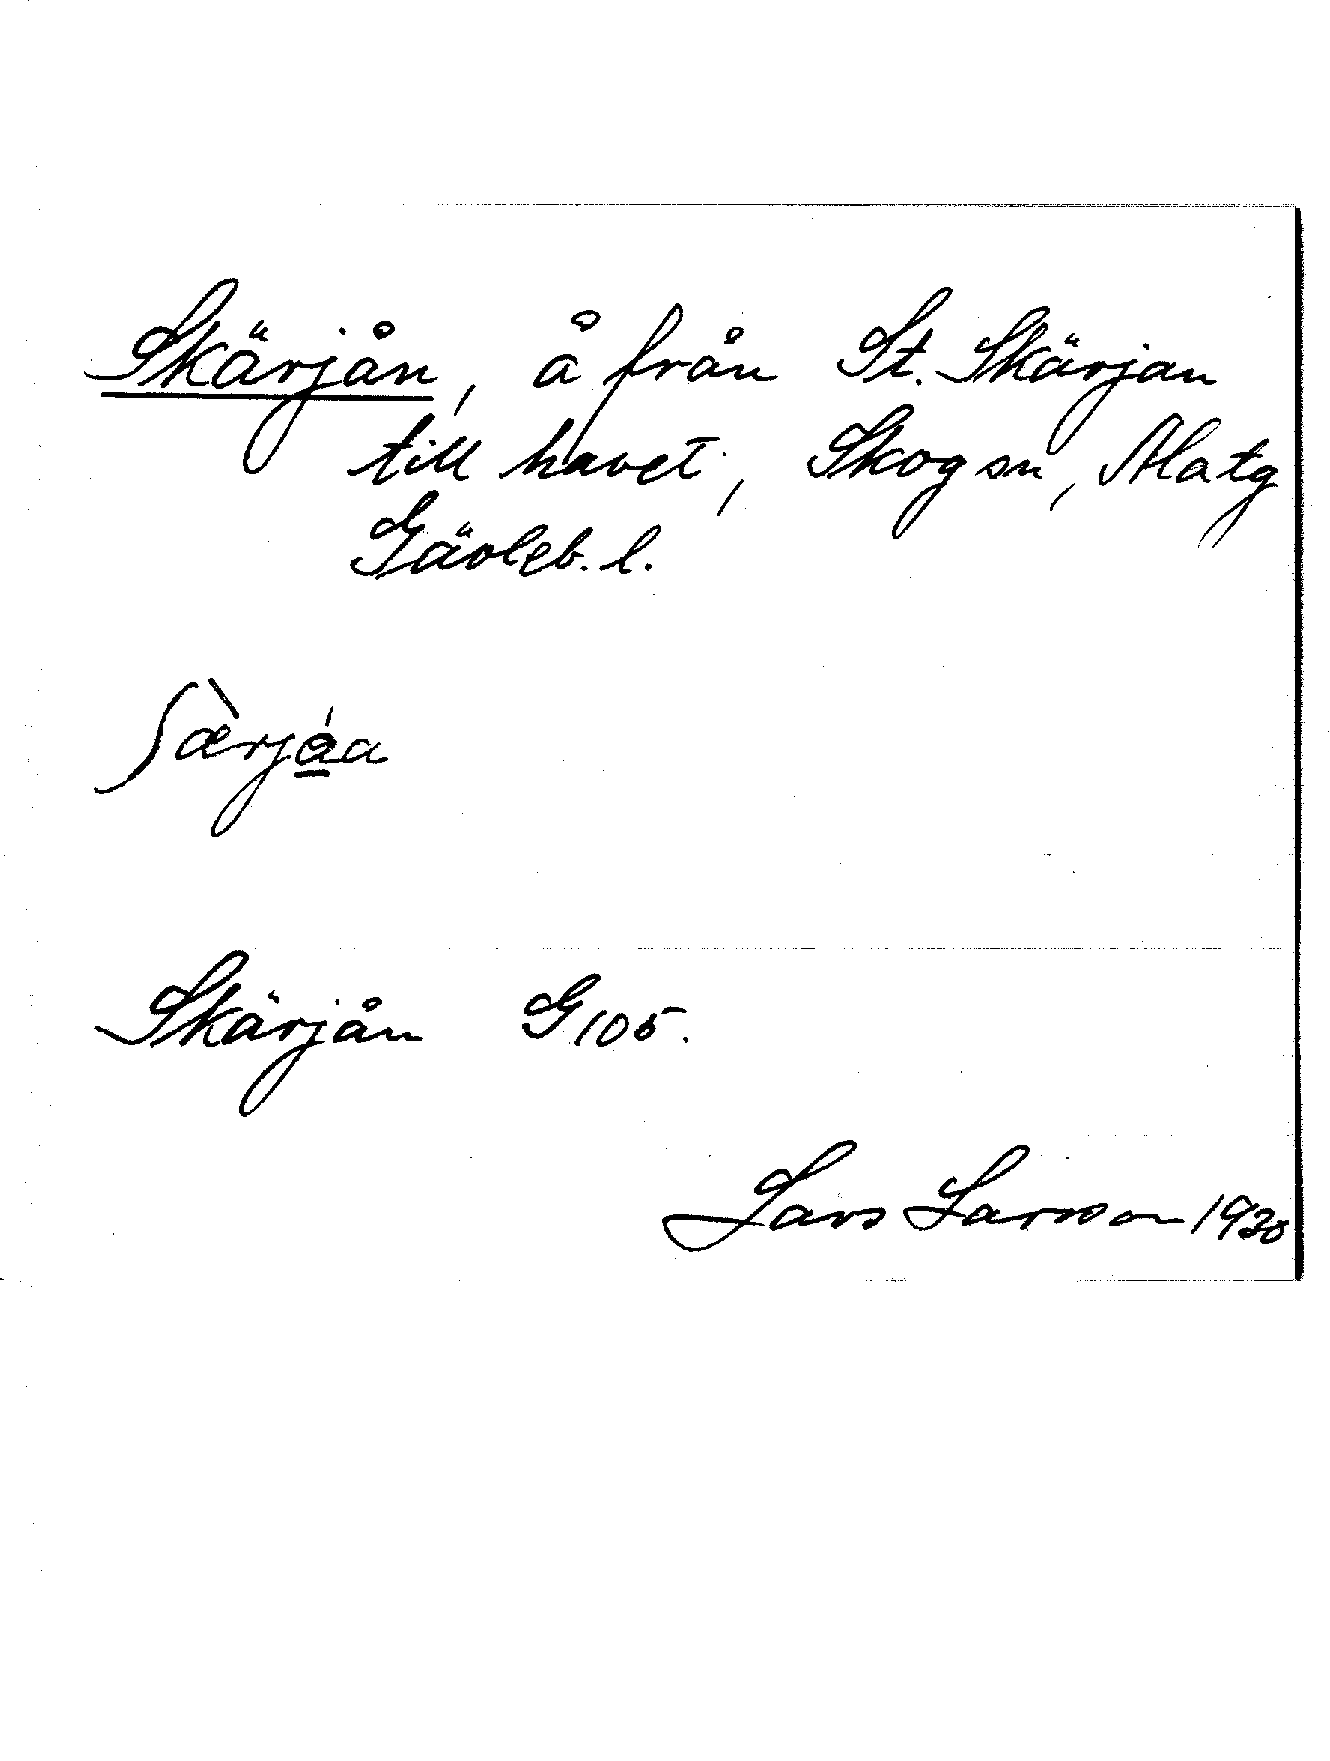 Skärjån, å från St. Skärjan
till havet, Skog sn, Ala tg
Gävleb. l.
ʃæ̀rjá̱a
Skärjån G105.
Lars Larsson 1930